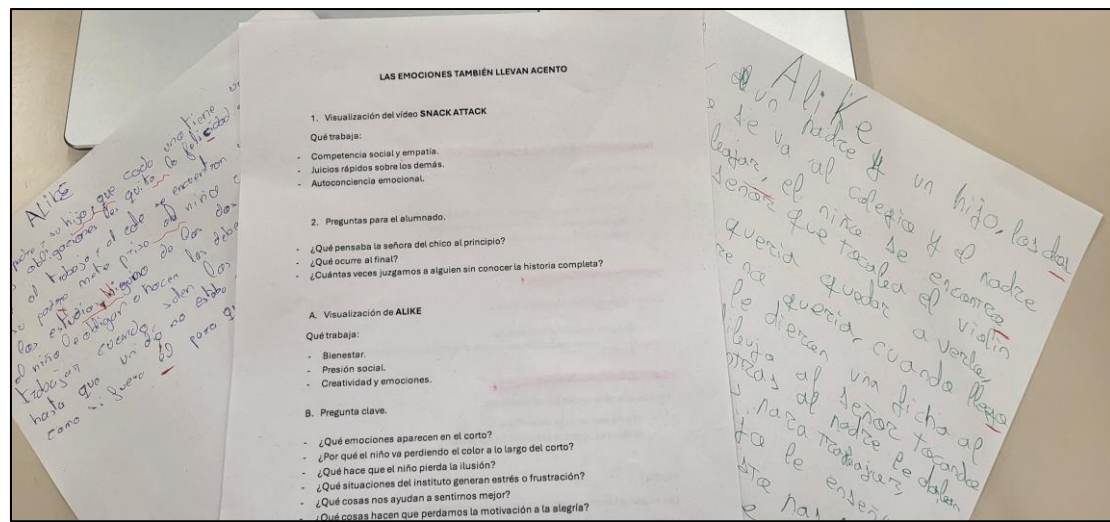 LAS EMOCIONES TAMBIÉN LLEVAN ACENTO
1. Visualización del vídeo SNACK ATTACK
Qué trabaja:
- Competencia social y empatía.
- Juicios rápidos sobre los demás.
- Autoconciencia emocional.
2. Preguntas para el alumnado.
- ¿Qué pensaba la señora del chico al principio?
- ¿Qué ocurre al final?
- ¿Cuántas veces juzgamos a alguien sin conocer la historia completa?
A. Visualización de ALIKE
Qué trabaja:
- Bienestar.
- Presión social.
- Creatividad y emociones.
B. Pregunta clave.
- ¿Qué emociones aparecen en el corto?
- ¿Por qué el niño va perdiendo el color a lo largo del corto?
- ¿Qué hace que el niño pierda la ilusión?
- ¿Qué situaciones del instituto generan estrés o frustración?
- ¿Qué cosas nos ayudan a sentirnos mejor?
- ¿Qué cosas hacen que perdamos la motivación a la alegría?
Alike
su hijo, que cada uno tiene
obligaciones les quita la felicidad
al trabajo, al cole se encuentran
su padre mete prisa al niño
los estudios. Ninguno de los dos
al niño le obligan a hacen los debe
trabajar cuando salen los
hasta que un día no estaba
como si fuera él para
Alike
un padre y un hijo, los dos
se va al colegio y el padre
el niño se encontro
señor que tocaba el violin
queria quedar a verle,
no queria, cuando llego
le dieron una ficha al
dibujo al señor tocando
otras al padre le daban
para trabajar,
le enseñ